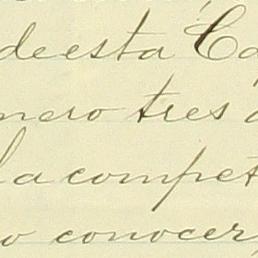 de esta Ca
mero tres
la compet
o conocer,